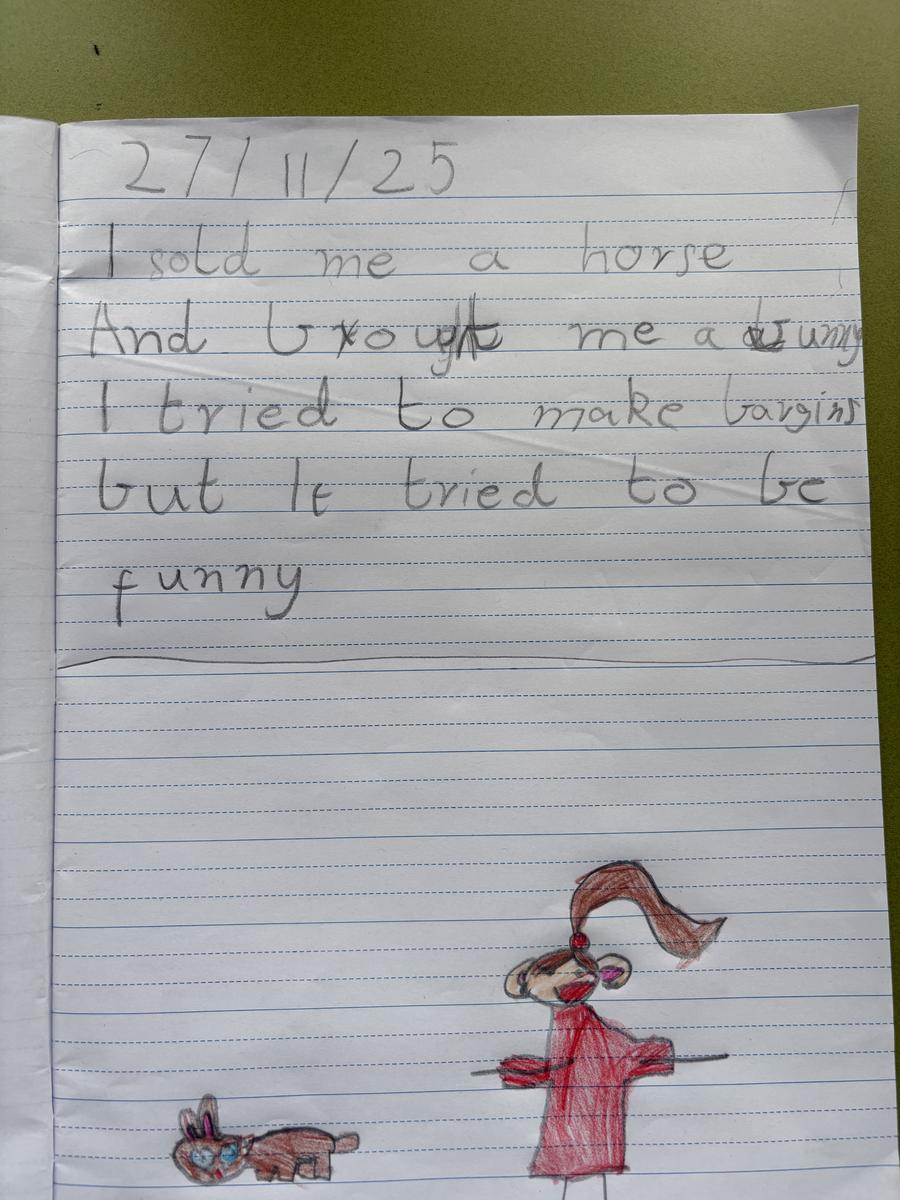 27/11/25
I sold me a horse
And brought me a unny
I tried to make bargins
but It tried to be
funny